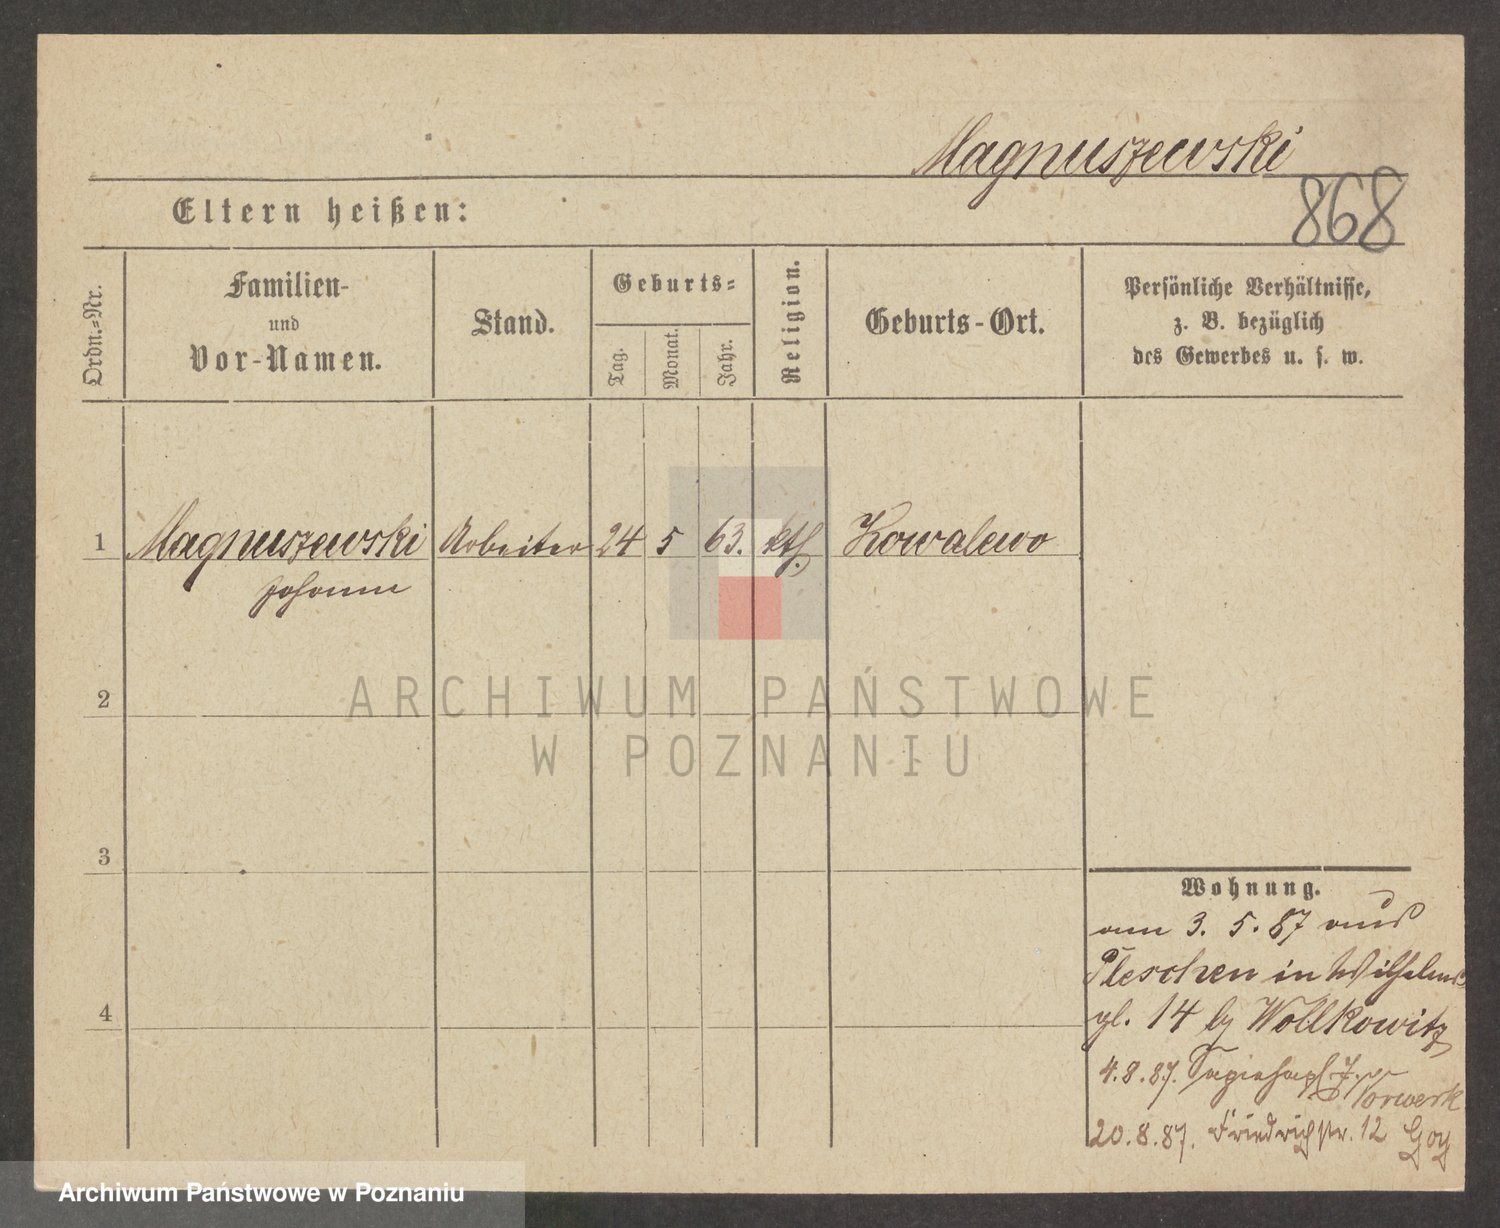 Magnuszewski
868
Eltern heißen:
Ordn.-Nr.
Familien-
und
Vor-Namen.
Stand.
Geburts-
Tag.
Monat.
Jahr.
Religion.
Geburts-Ort.
Persönliche Verhältnisse,
z. B. bezüglich
des Gewerbes u. s. w.
1 Magnuszewski Arbeiter 24 5 63. kth. Kowalewo
Johann
2
ARCHIWUM PAŃSTWOWE
W POZNANIU
3
Wohnung.
am 3. 5. 87 aus
Pleschen in Wilhelms
pl. 14 by Wollkowitz
4
4.8.87.
Vorwerk
20.8.87. Friedrichstr. 12 Goy
Archiwum Państwowe w Poznaniu